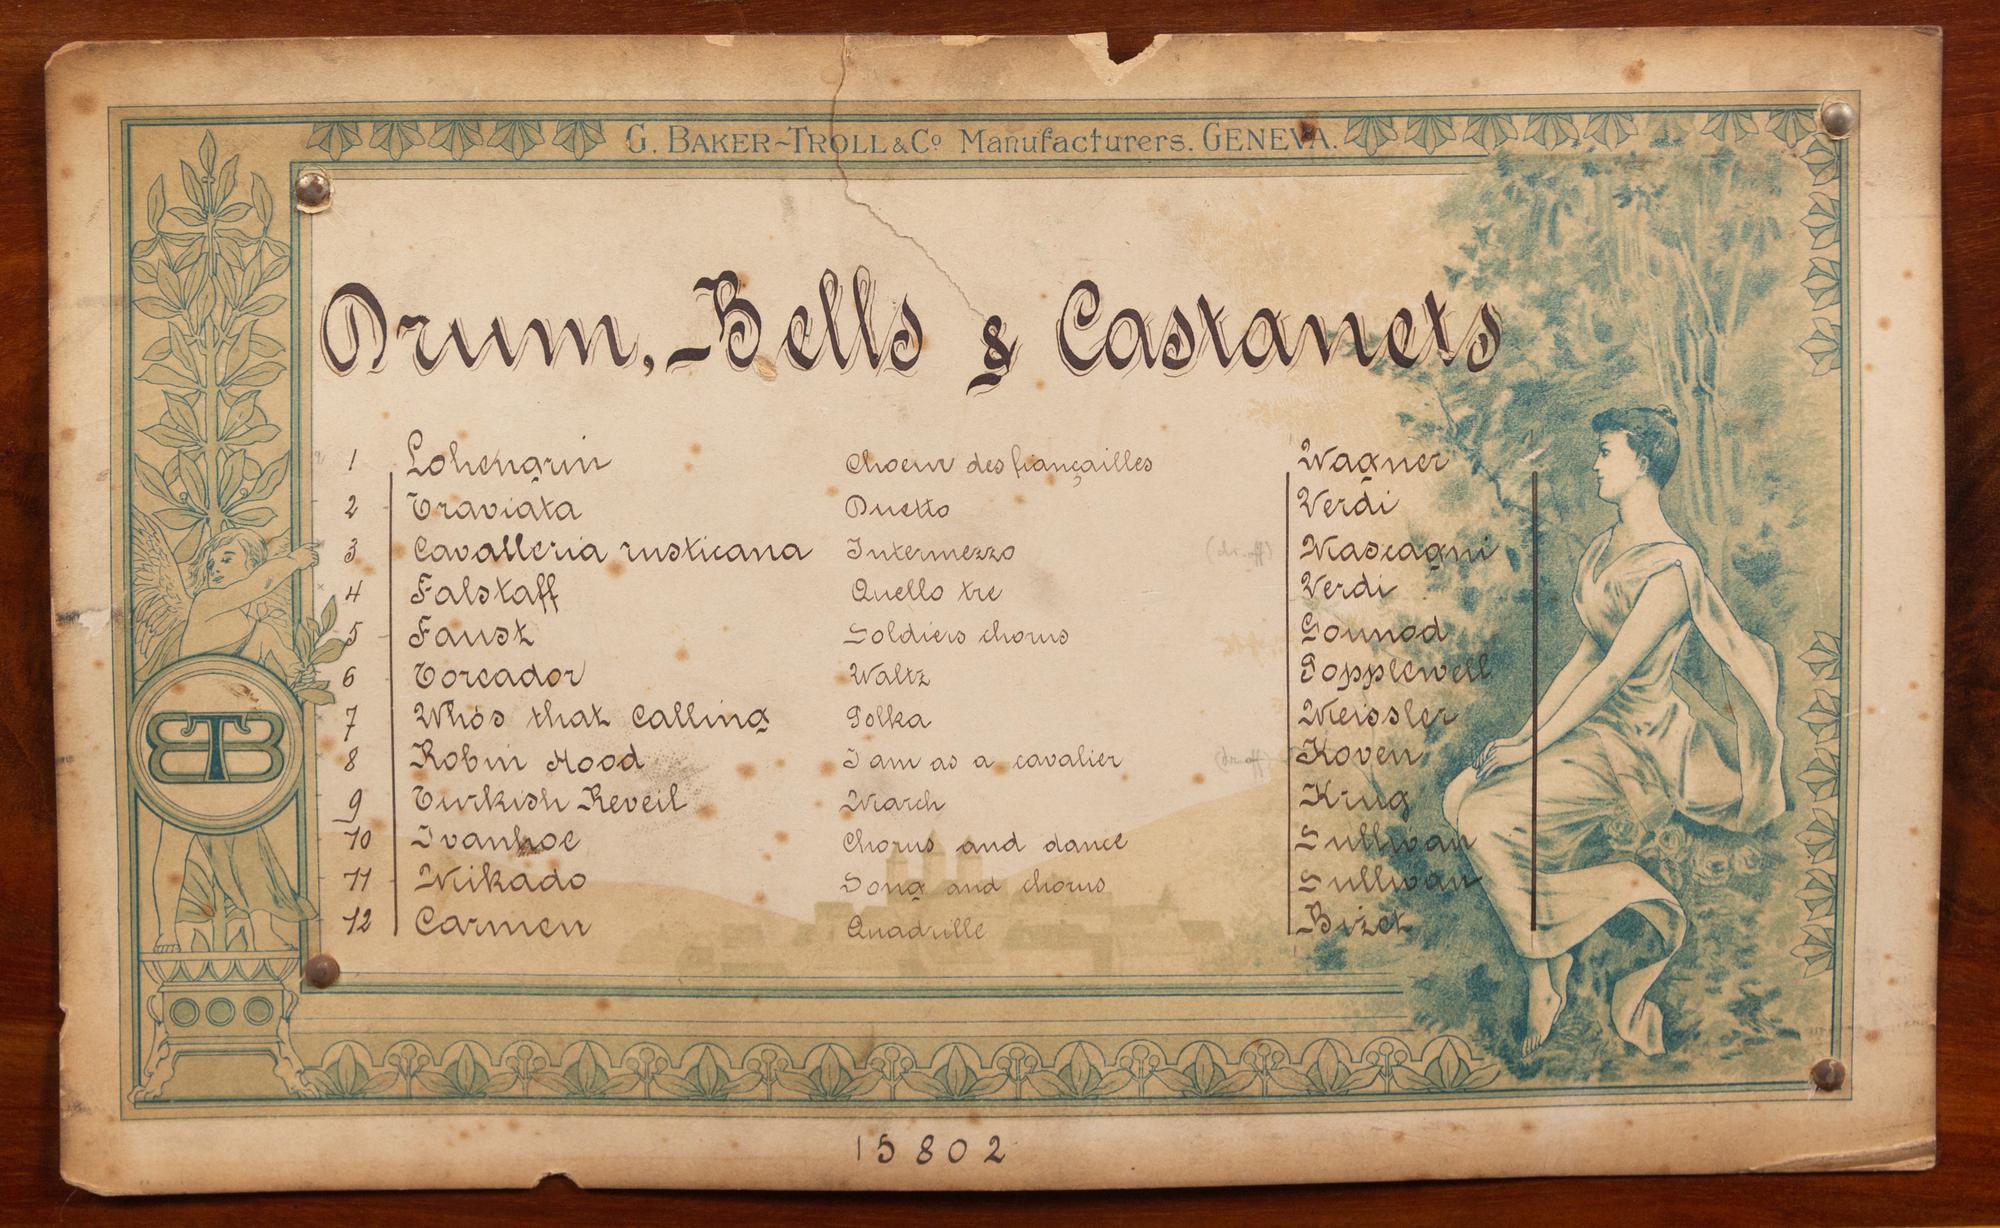 G. BAKER-TROLL & Co Manufacturers. GENEVA.
Drum, Bells & Castanets
1 Lohengrin Choeur des fiançailles Wagner
2 Traviata Duetto Verdi
3 Cavalleria rusticana Intermezzo Mascagni
4 Falstaff Quello tre Verdi
5 Faust Soldiers chorus Gounod
6 Toreador Waltz Popplewell
7 Who's that calling Polka Meissler
8 Robin Hood I am as a cavalier Koven
9 Turkish Reveil March Krug
10 Ivanhoe Chorus and dance Sullivan
11 Mikado Song and chorus Sullivan
12 Carmen Quadrille Bizet
BTB
15802